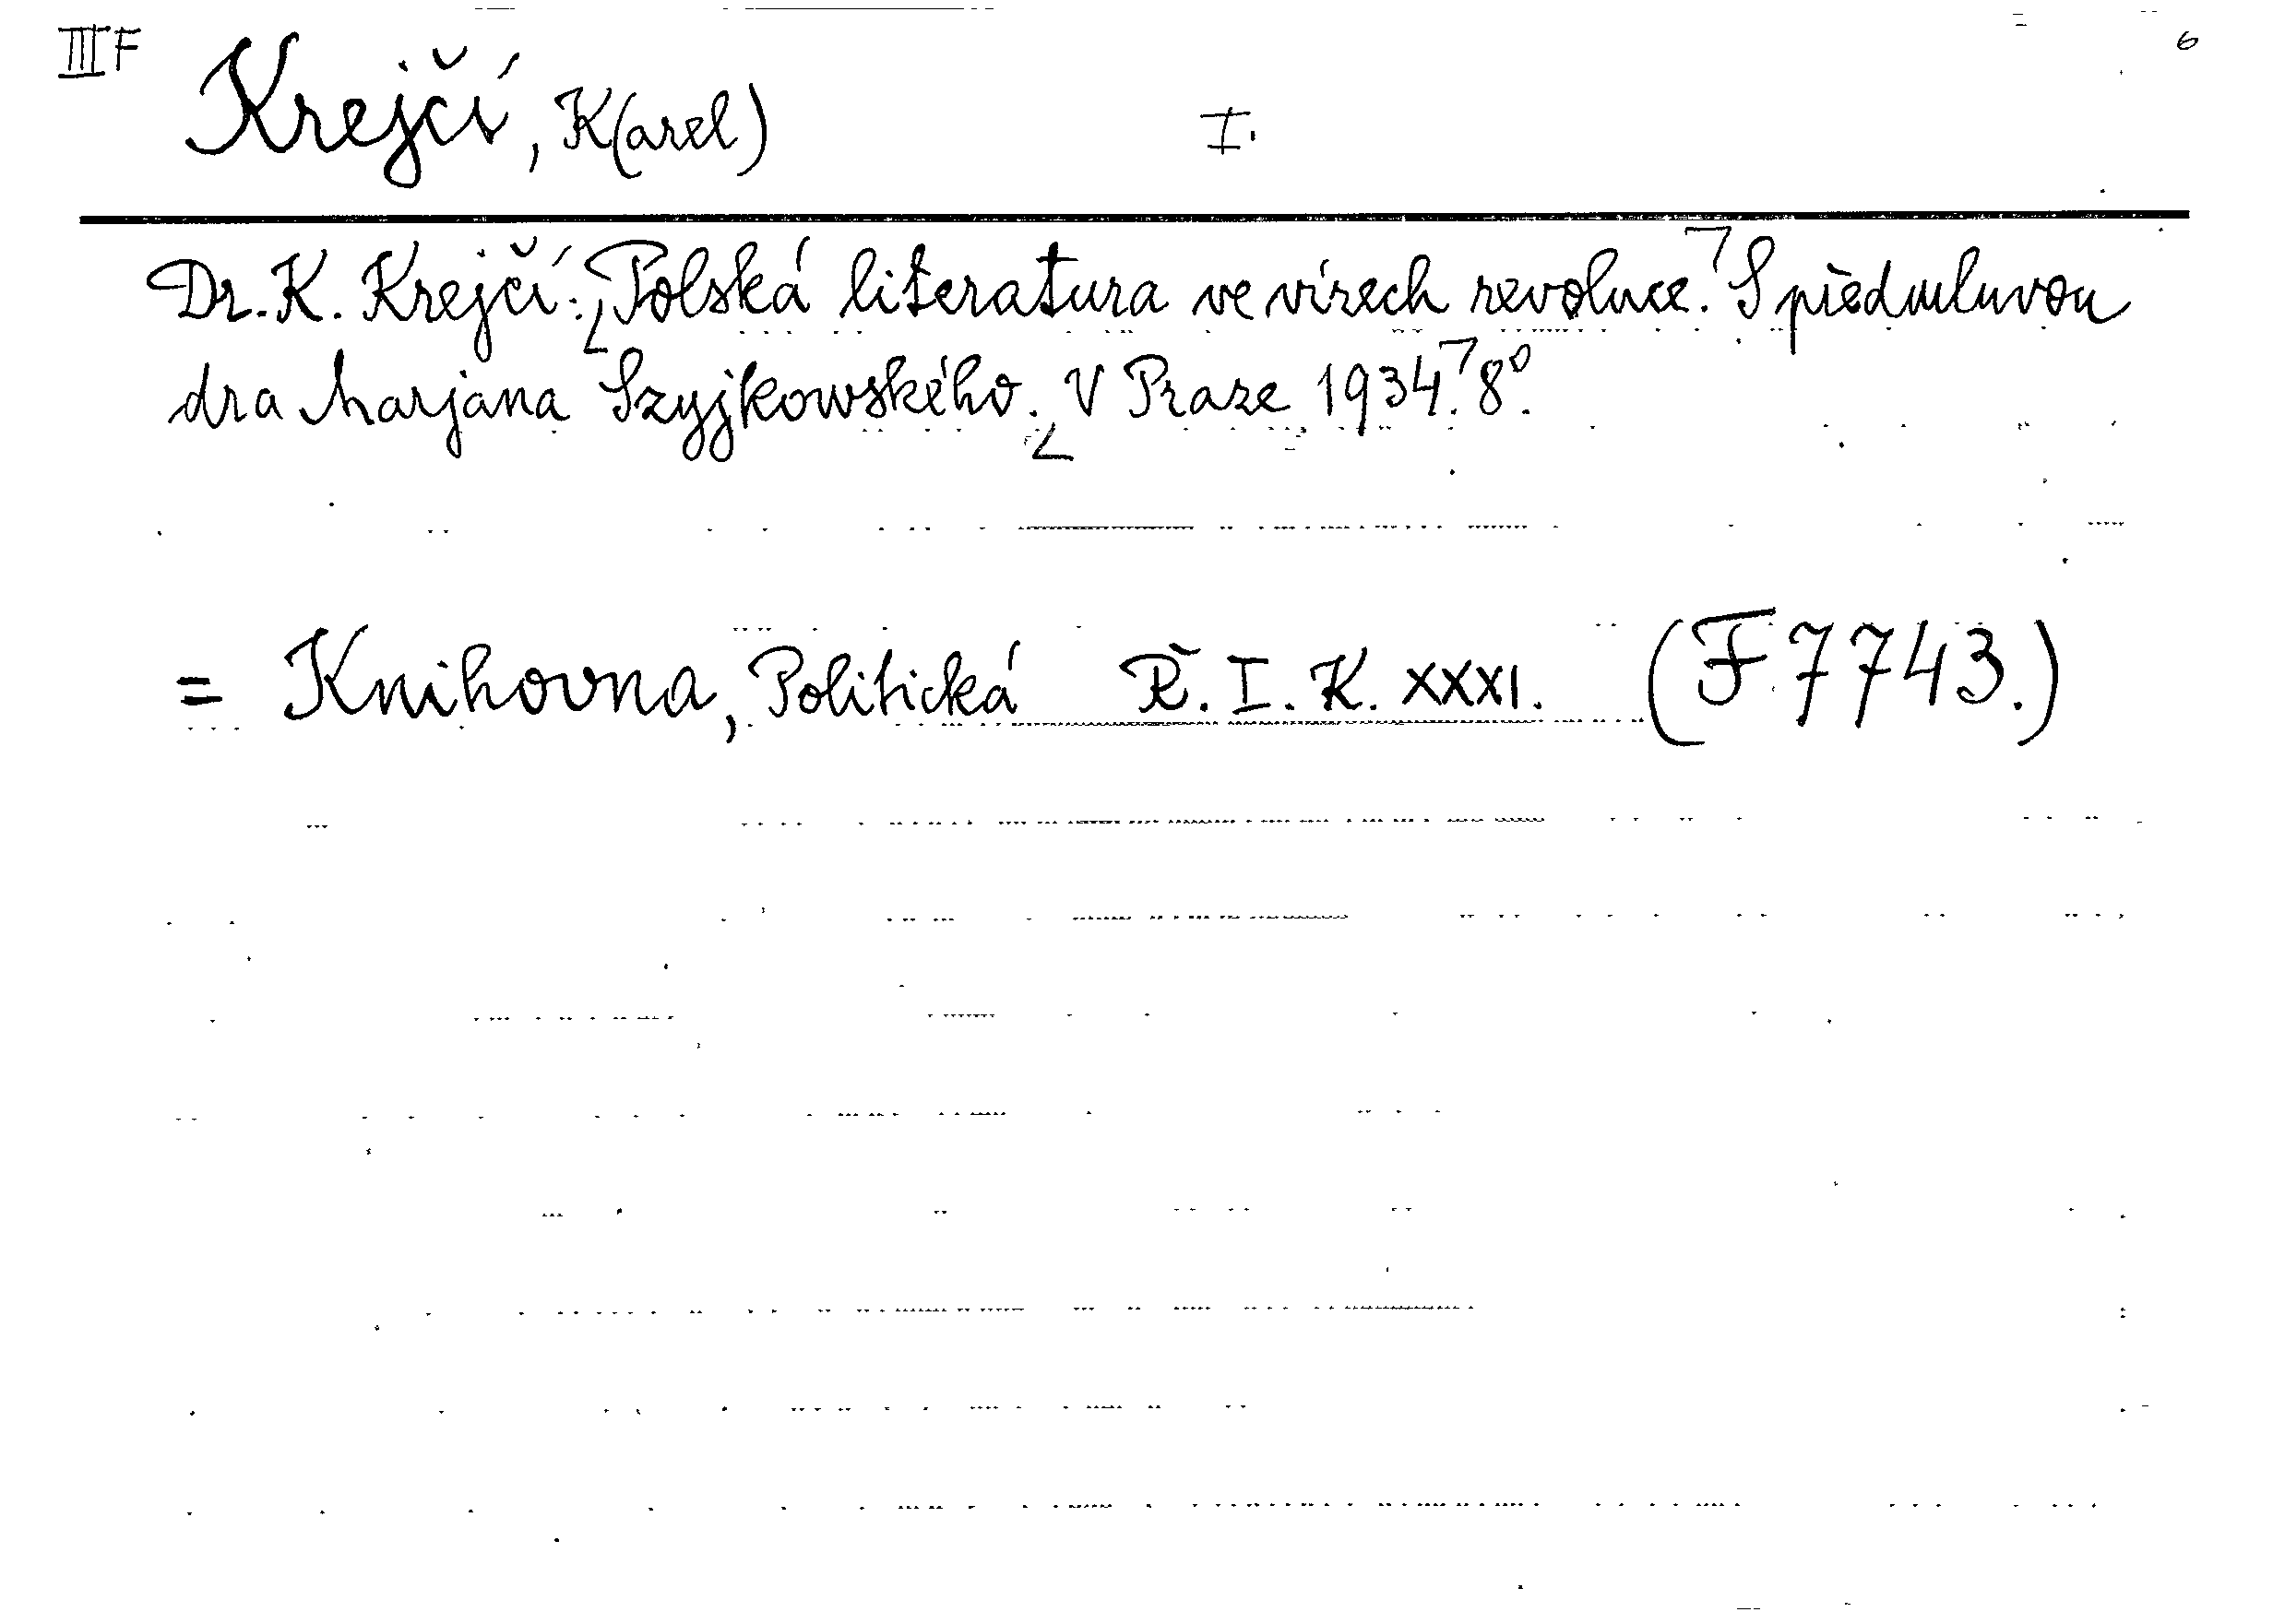 III F 6
Krejčí, K(arel) I.
Dr. K. Krejčí: Polská literatura ve vírech revoluce. S předmluvou
dra Marjana Szyjkowského. V Praze 1934. 8°.
= Knihovna, Politická Ř. I. K. XXXI. (F 7743.)